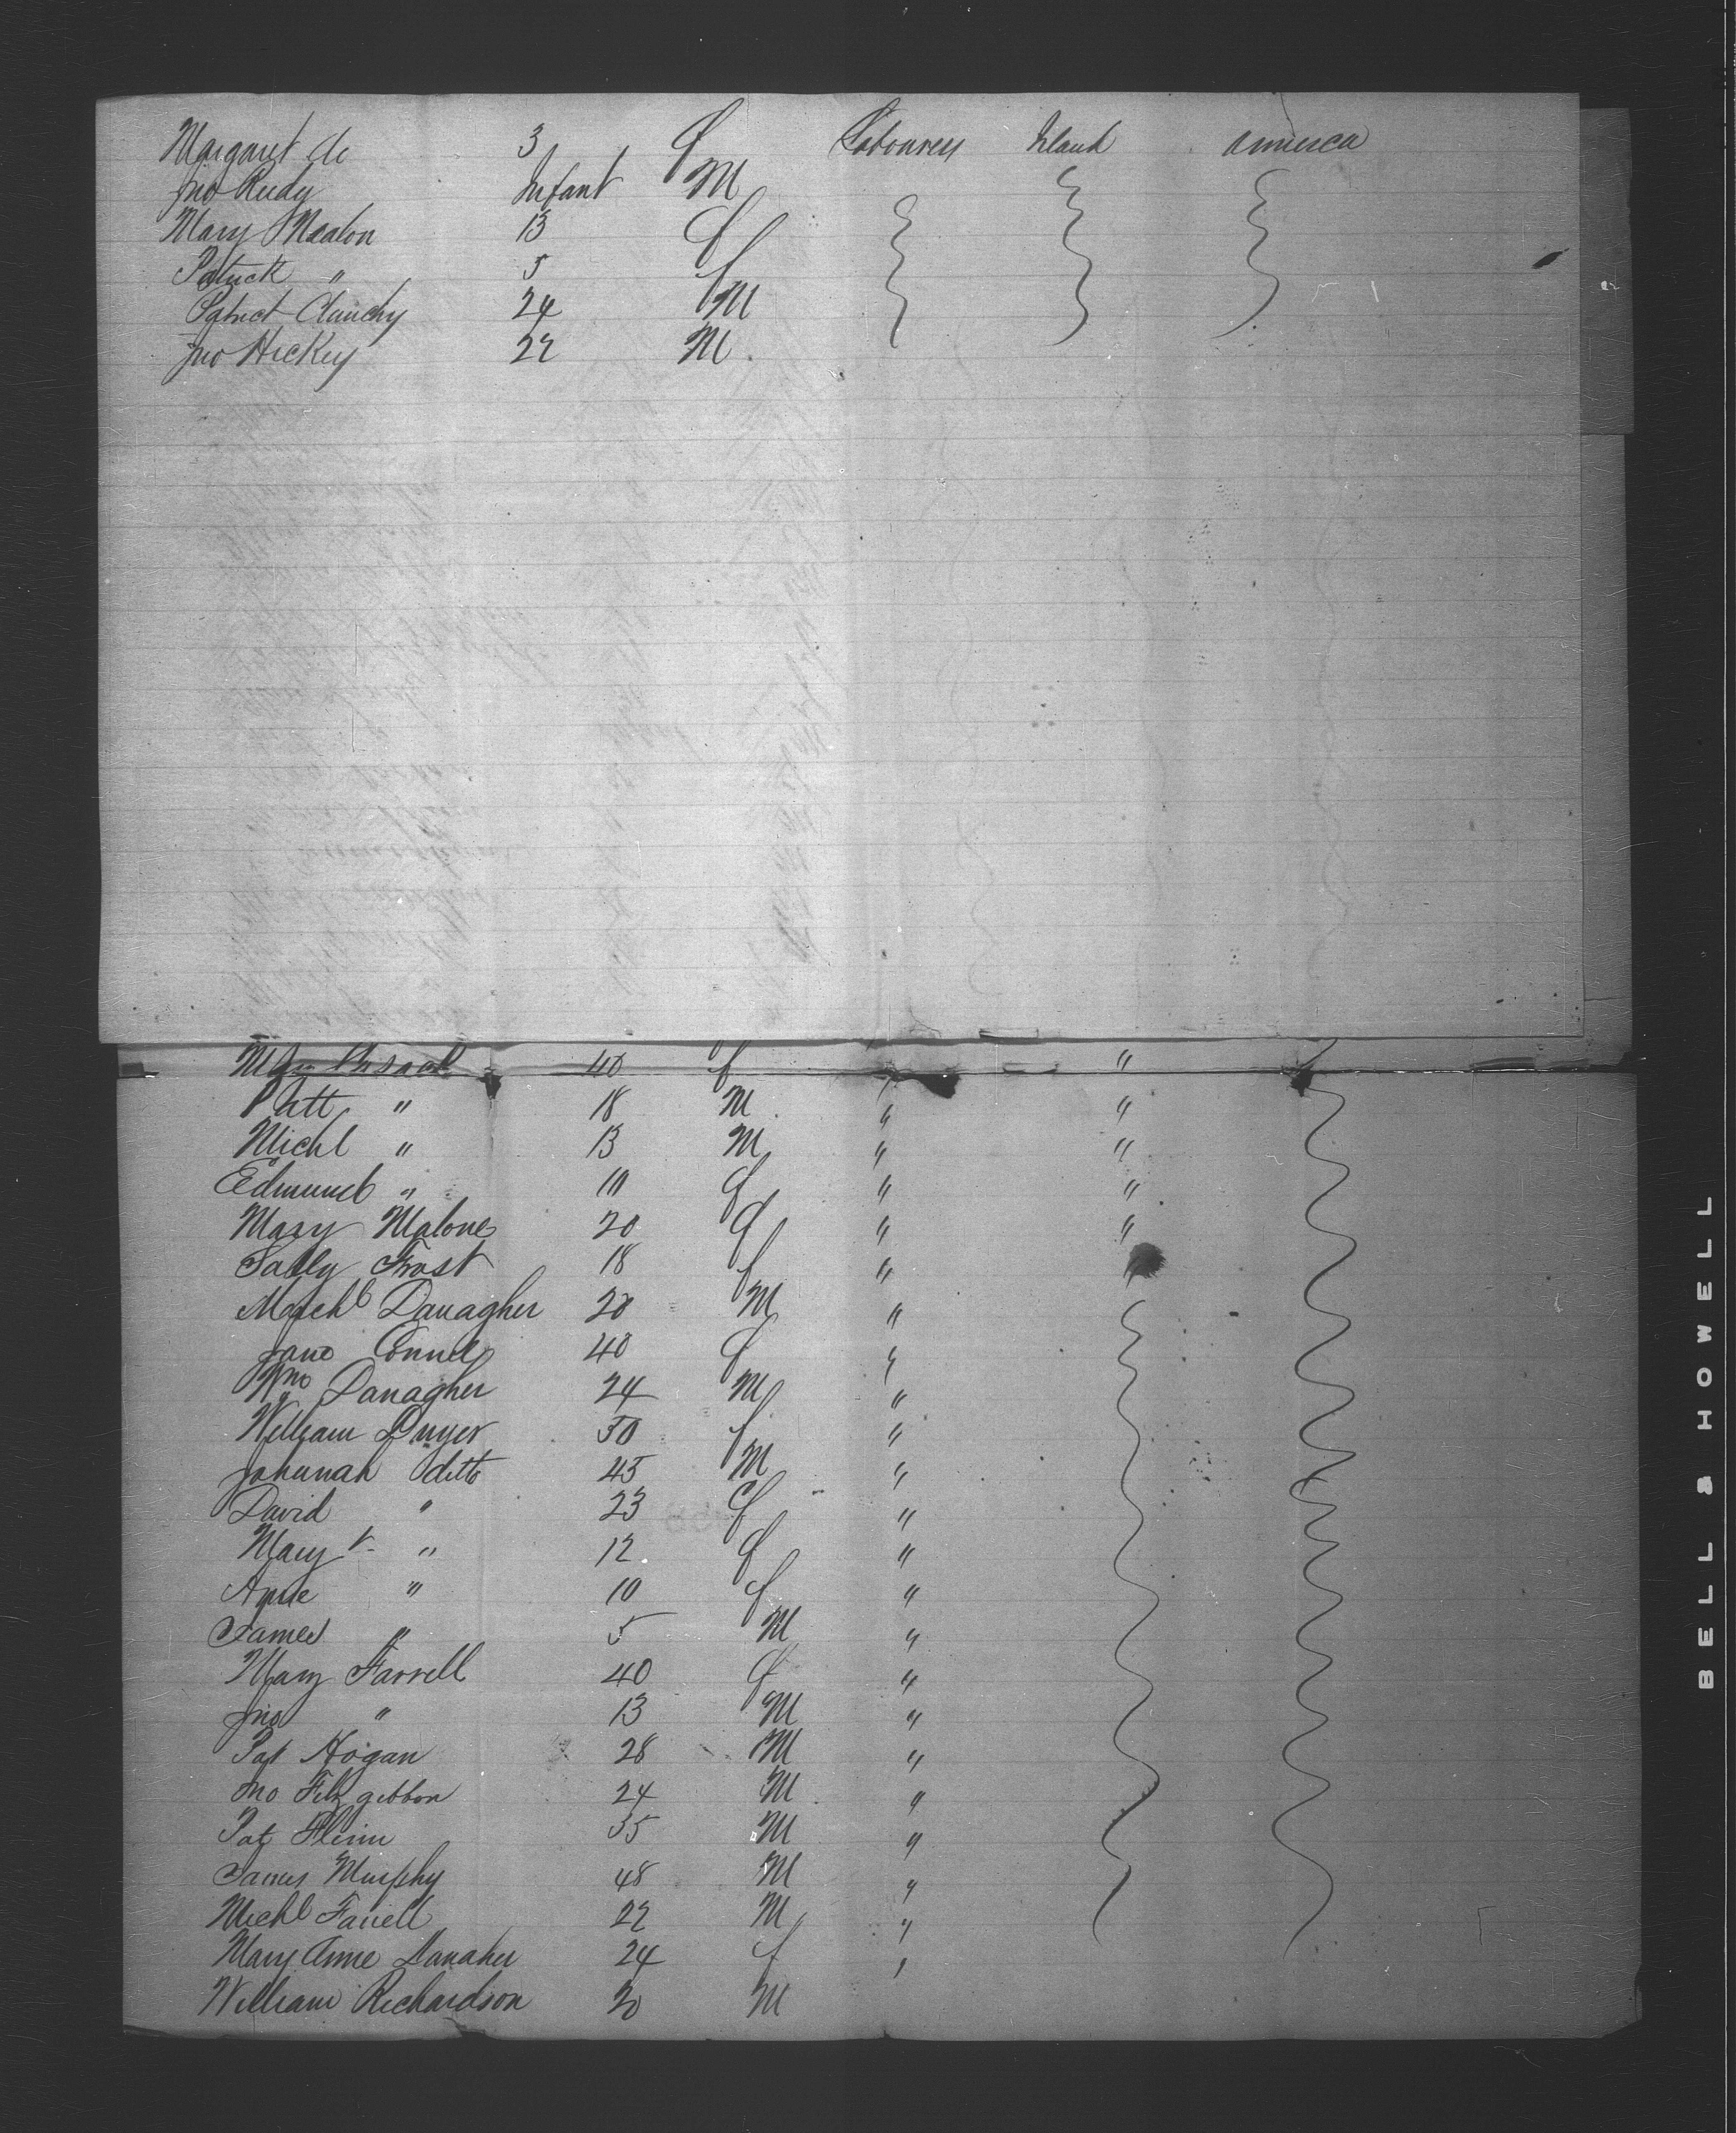 Margaret do 3 f Labourers Ireland America
Jno Rudy Infant M
Mary Mealon 13 f
Patrick " 5 f
Patrick Clunchy 24 M
Jno Hickey 22 M
Mary 40 f "
Patt " 18 M " "
Michl " 13 M " "
Edmund " 10 f " "
Mary Malone 20 f " "
Sally Frost 18 f " "
Michl Danagher 20 M "
Jane Connel 40 f "
Wm Danagher 24 M "
William Dwyer 50 f "
Johanah ditto 45 M "
David " 23 f "
Mary " 12 f "
Anne " 10 f "
James " 5 M "
Mary Farrell 40 f "
Jno " 13 M "
Pat Hogan 28 M "
Jno Fitzgibbon 24 M "
Pat Flinn 35 M "
James Murphy 48 M "
Michl Farrell 22 M "
Mary Anne Danaher 24 f "
William Richardson 20 M
BELL & HOWELL